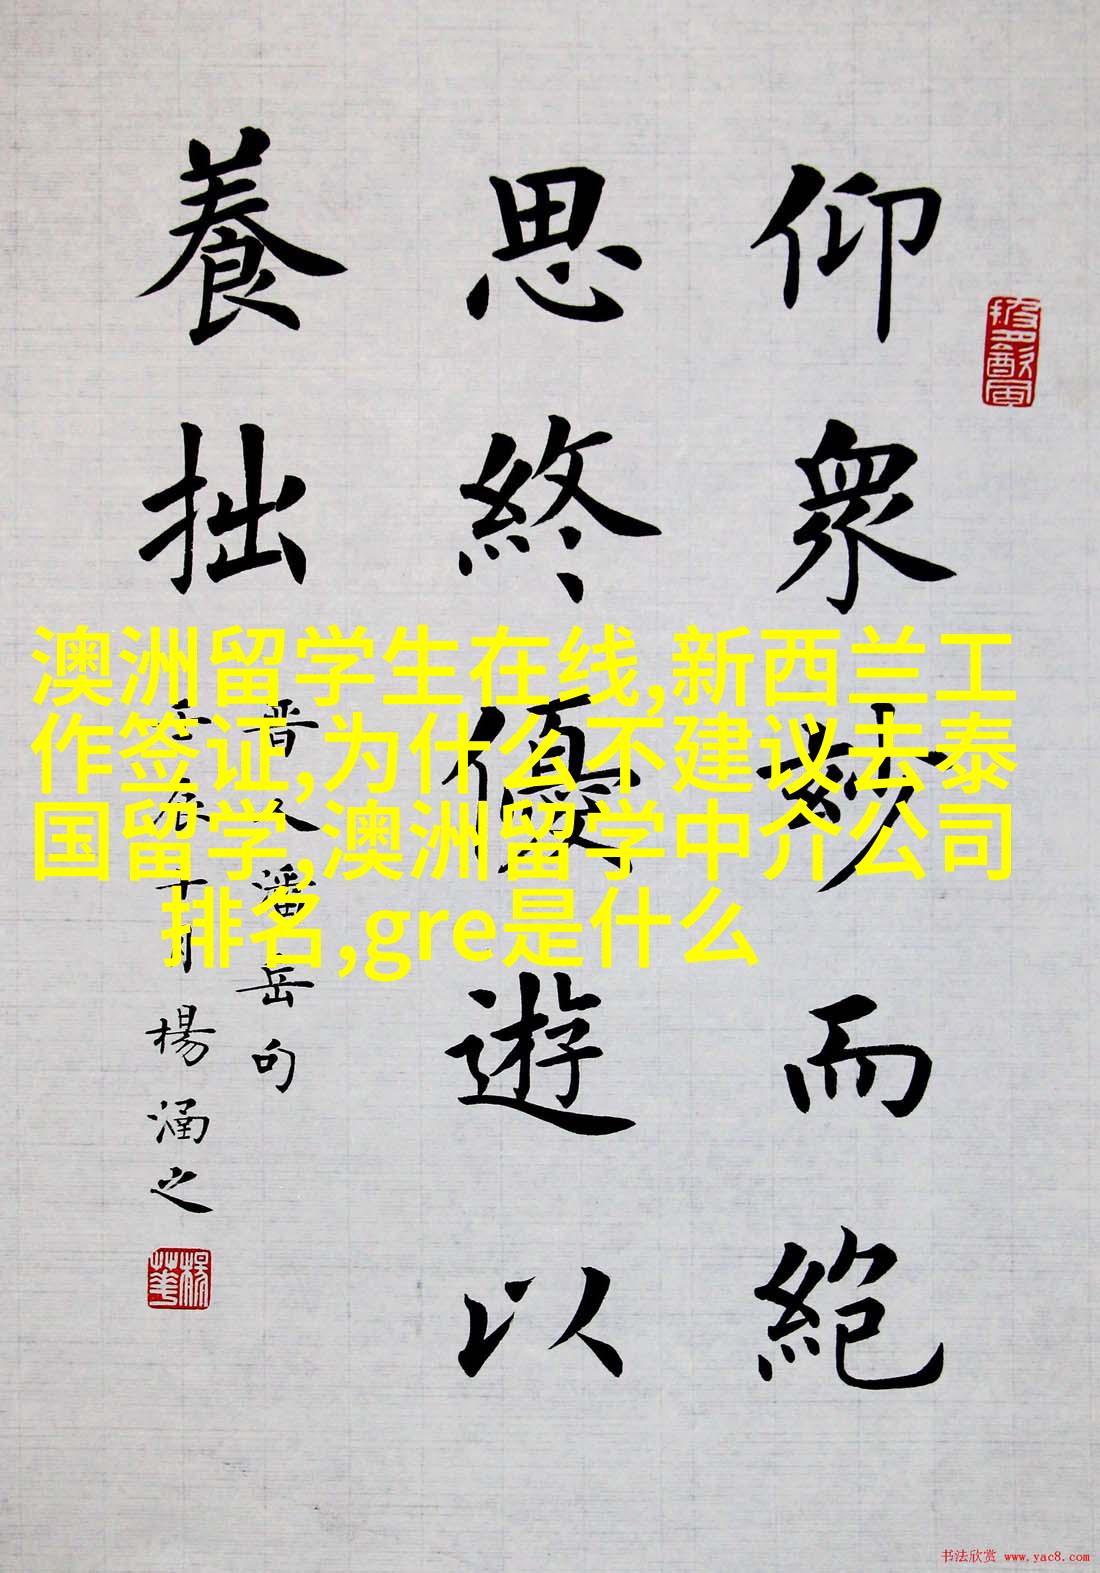 仰眾妙而絕
思終優遊以
養拙
晋人潘岳句
壬辰十月楊涵之
澳洲留学生在线,新西兰工
作签证,为什么不建议去泰
国留学,澳洲留学中介公司
排名,gre是什么
书法欣赏 www.yac8.com